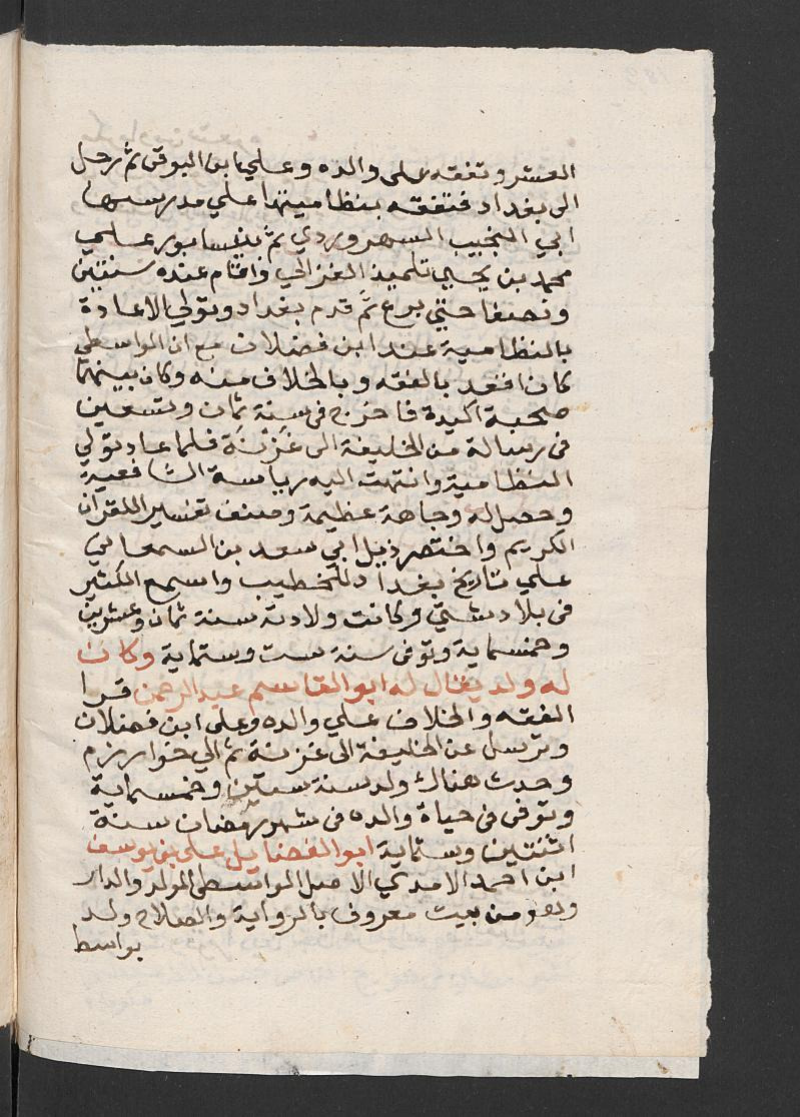 العشر وتفقه على والده وعلي ابن البوقى ثم رحل
الى بغداد فتفقه بنظاميتها علي مدرسها
ابي النجيب السهروردي ثم بنيسابور علي
محمد بن يحيي تلميذ الغزالي واقام عنده سنتين
ونصفا حتي برع ثم قدم بغداد وتولي الاعادة
بالنظامية عند ابن فضلان مع ان الواسطي
كان افقد بالفقه وبالخلاف منه وكان بينهما
صحبة اكيدة فاخرج فى سنة ثمان وتسعين
فى رسالة من الخليفة الى غزنة فلما عاد تولي
النظامية وانتهت اليه رياسة الشافعية
وحصل له وجاهة عظيمة وصنف تفسير اللقران
الكريم واختصر ذيل ابي سعد بن السمعاني
علي تاريخ بغداد للخطيب واسمع الكثير
فى بلاد شتي وكانت ولادته سنة ثمان وعشرين
وخمسماية وتوفى سنة ست وستماية وكان
له ولد يقال له ابو القاسم عبد الرحمن قرا
الفقه والخلاف علي والده وعلى ابن فضلان
وترسل عن الخليفة الى غزنة ثم الي خوارزم
وحدث هناك ولد سنة ستين وخمسماية
وتوفى فى حياة والده فى شهر رمضان سنة
اثنتين وستماية ابو الفضايل على بن يوسف
ابن احمد الامدي الاصل الواسطى المولد والدار
وهو من بيت معروف بالرواية والصلاح ولد
بواسط